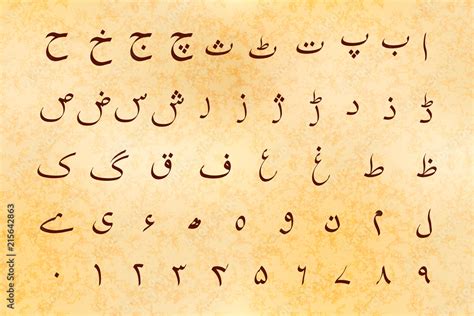 ا ب پ ت ٹ ث چ ج خ ح
ڈ ذ د ڑ ژ ز ر ش س ض ص
ظ ط غ ع ف ق گ ک
ل م ن و ہ ھ ء ی ے
۰ ۱ ۲ ۳ ۴ ۵ ۶ ۷ ۸ ۹
Adobe Stock | #215642863